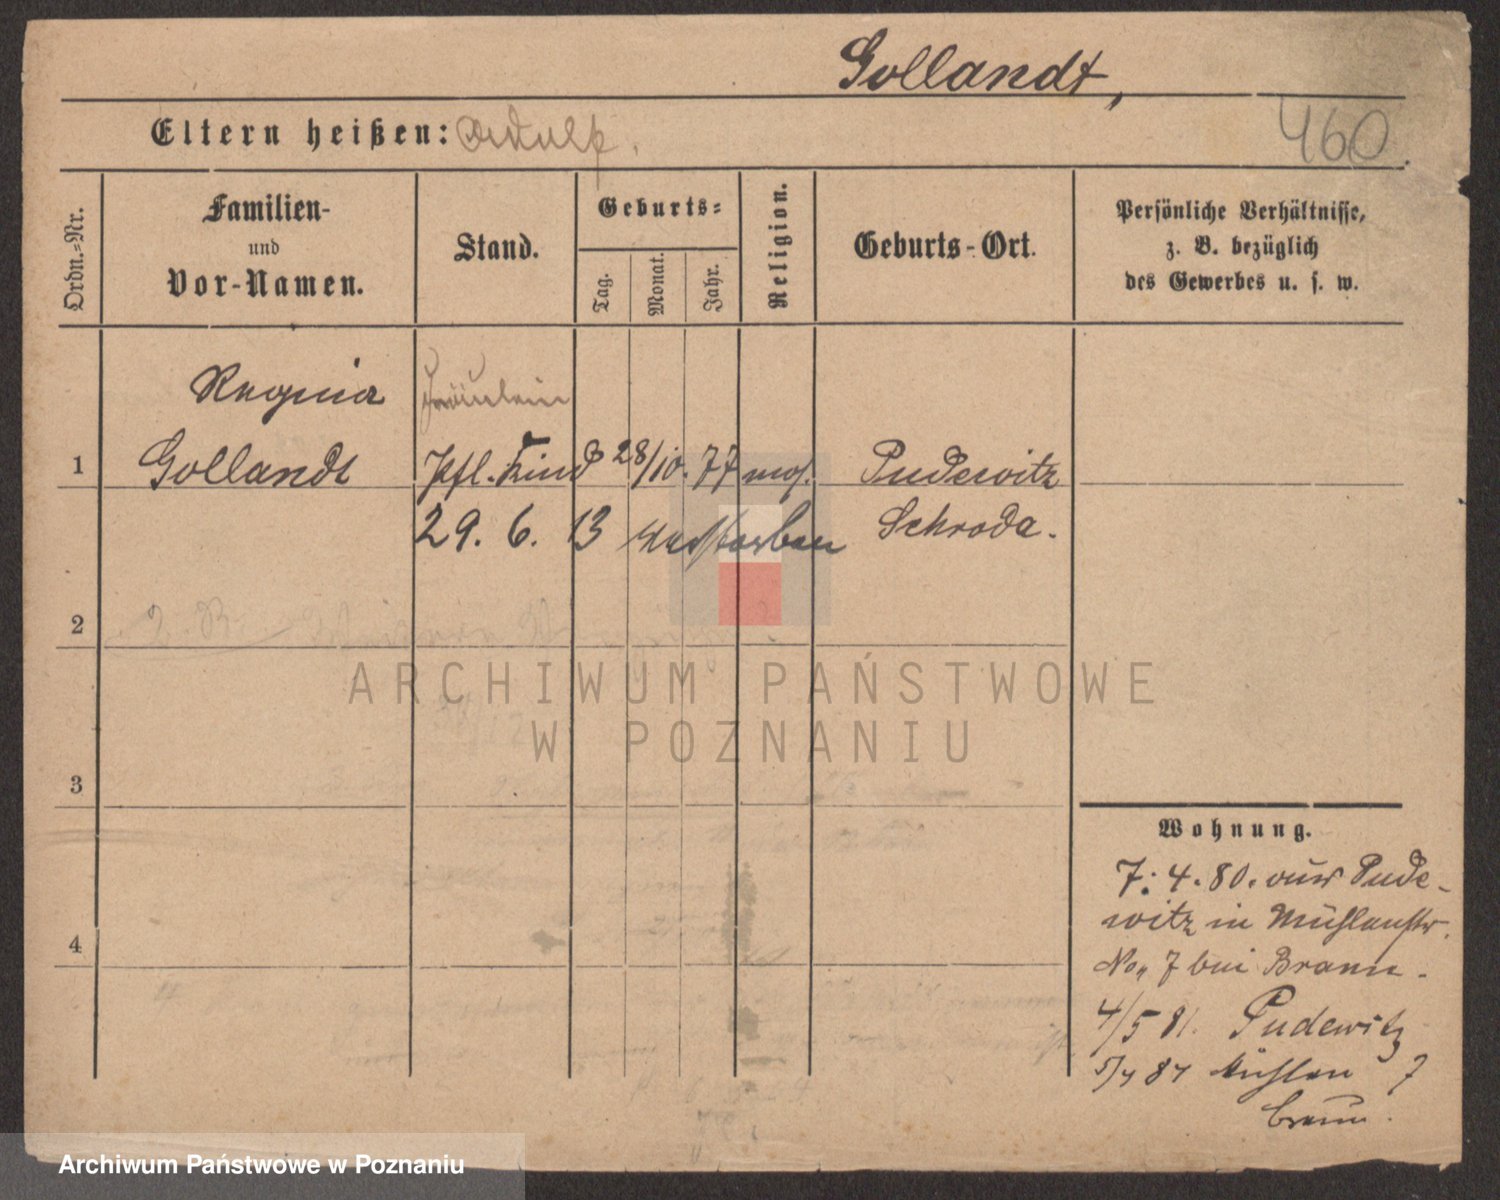 Gollandt,
460.
Eltern heißen: Adolf.
Ordn.-Nr.
Familien-
und
Vor-Namen.
Stand.
Geburts-
Tag.
Monat.
Jahr.
Religion.
Geburts-Ort.
Persönliche Verhältnisse,
z. B. bezüglich
des Gewerbes u. s. w.
Regina
Fräulein
1 Gollandt Pfl. Kind 28/10. 77 mos. Pudewitz
29. 6. 13 verstorben Schroda.
2
3
4
ARCHIWUM PAŃSTWOWE
W POZNANIU
Wohnung.
7. 4. 80. aus Pude-
witz in Mühlenstr.
No. 7 bei Braun.
4/5 81. Pudewitz
5/4 87 Mühlen 7
Braun.
Archiwum Państwowe w Poznaniu